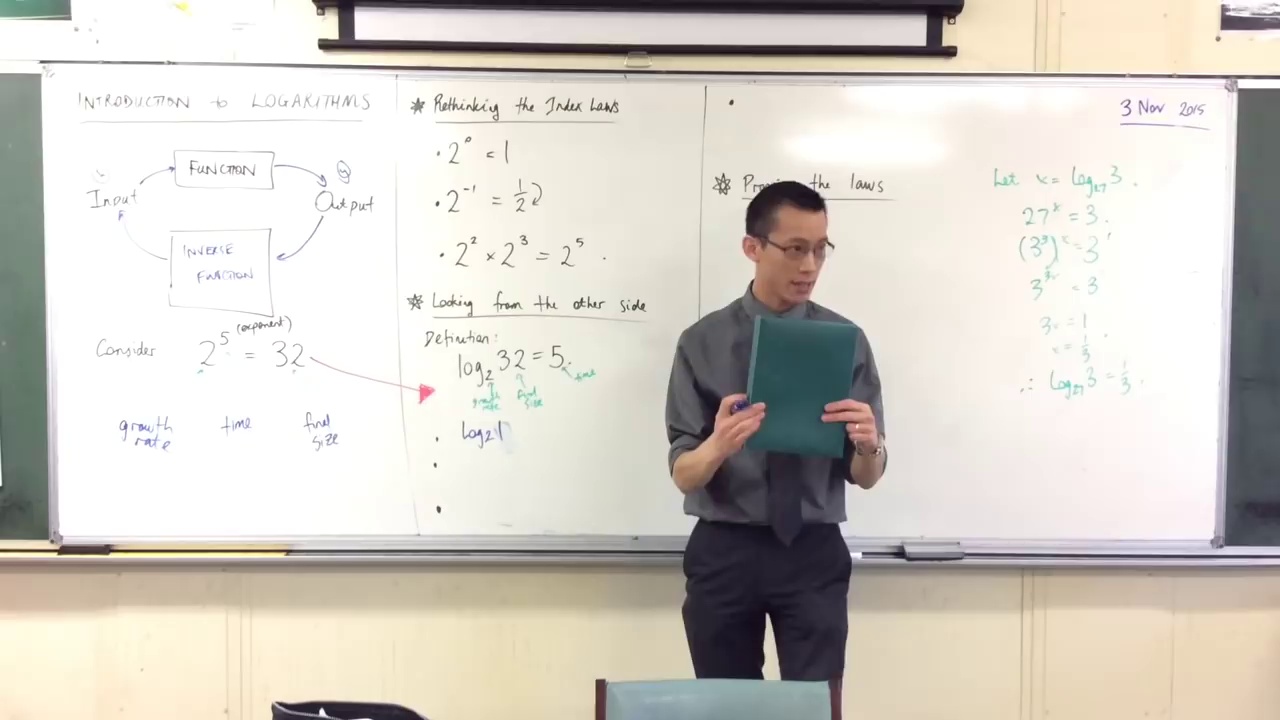 INTRODUCTION to LOGARITHMS
FUNCTION
Input
Output
INVERSE
FUNCTION
Consider 2^5 (exponent) = 32
growth rate
time
final size
Rethinking the Index Laws
• 2^0 = 1
• 2^-1 = 1/2
• 2^2 × 2^3 = 2^5.
Looking from the other side
Definition:
log_2 32 = 5.
growth rate
final size
time
• log_2 1
•
•
•
the laws
3 Nov 2015
Let x = log_27 3.
27^x = 3.
(3^3)^x = 3^1
3^3x = 3
3x = 1
x = 1/3.
∴ log_27 3 = 1/3.